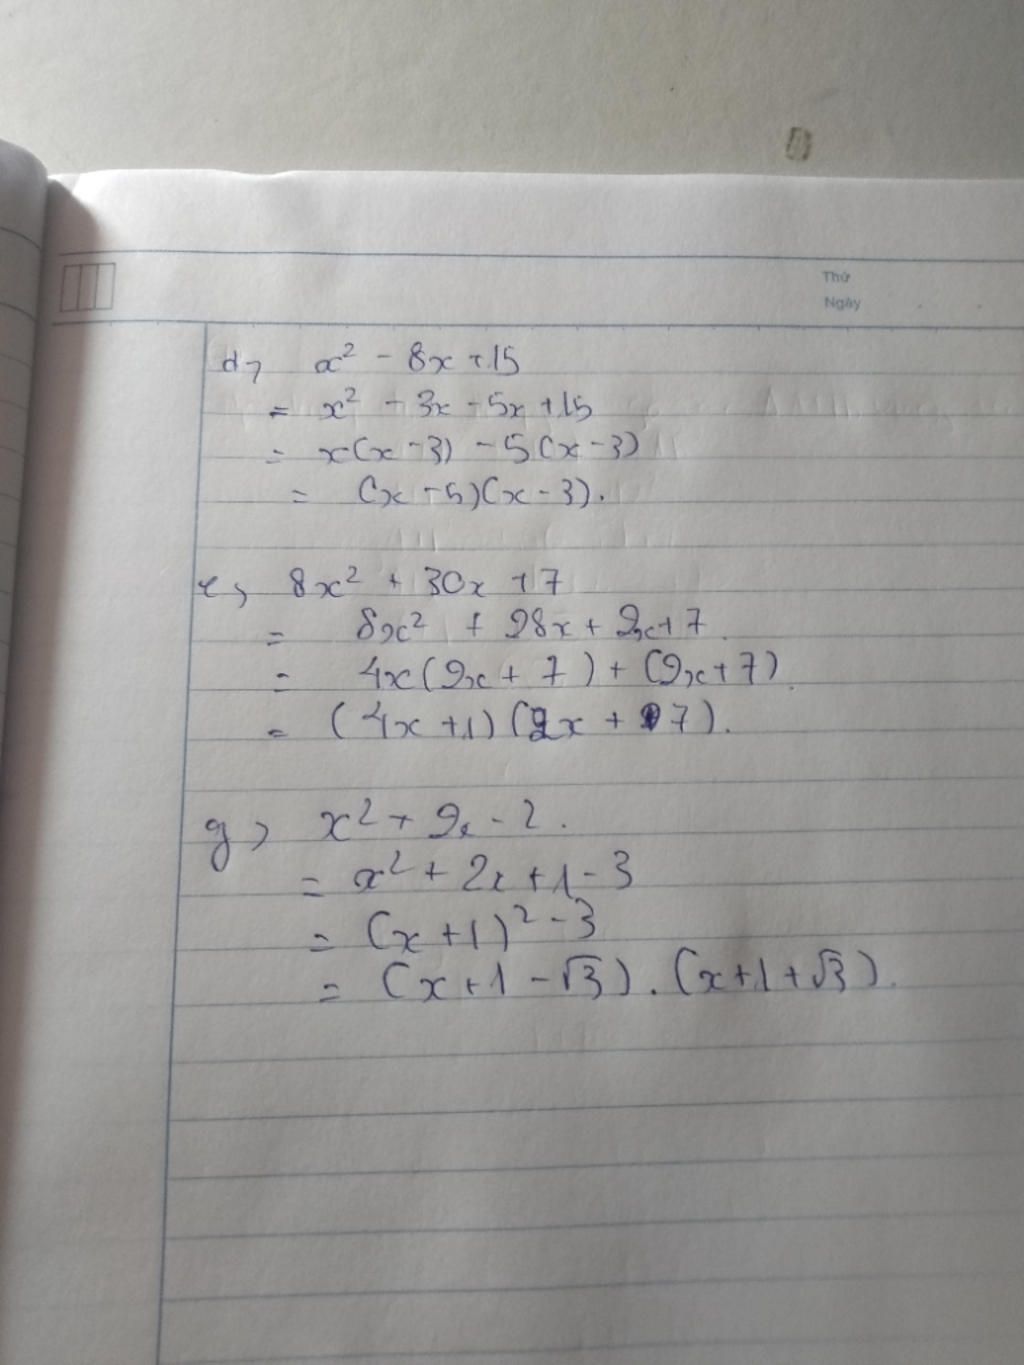 Thứ
Ngày
d, x² - 8x + 15
= x² - 3x - 5x + 15
= x(x - 3) - 5(x - 3)
= (x - 5)(x - 3).
e, 8x² + 30x + 7
= 8x² + 28x + 2x + 7
= 4x(2x + 7) + (2x + 7)
= (4x + 1)(2x + 7).
g, x² + 2x - 2.
= x² + 2x + 1 - 3
= (x + 1)² - 3
= (x + 1 - √3).(x + 1 + √3).